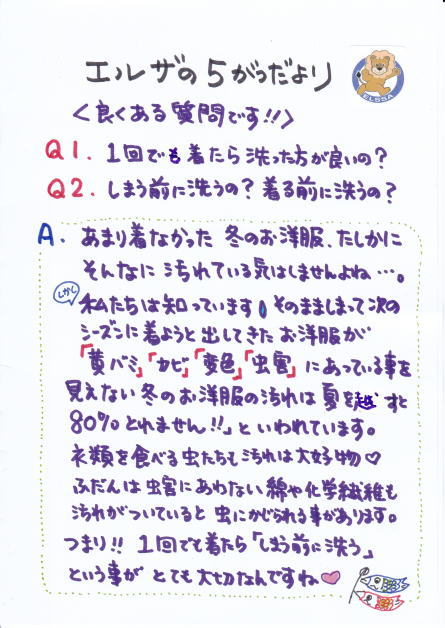 エルザの5がつだより
ELSSA
〈良くある質問です!!〉
Q1. 1回でも着たら洗った方が良いの?
Q2. しまう前に洗うの?着る前に洗うの?
A. あまり着なかった冬のお洋服、たしかに
そんなに汚れている気はしませんよね…。
しかし
私たちは知っています!そのまましまって次の
シーズンに着ようと出してきたお洋服が
「黄バミ」「カビ」「変色」「虫害」にあっている事を
見えない冬のお洋服の汚れは夏を越すと
80%とれません!!」といわれています。
衣類を食べる虫たちも汚れは大好物♡
ふだんは虫害にあわない綿や化学繊維も
汚れがついていると虫にかじられる事があります。
つまり!!1回でも着たら「しまう前に洗う」
という事がとても大切なんですね♡